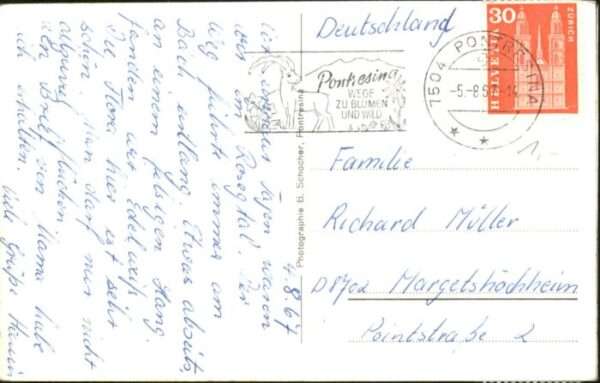 4.8.67
waren
wir im Rosegtal. Der
Weg führt immer am
Bach entlang. Etwas abseits,
an einem felsigen Hang
fanden wir Edelweiß
Die Flora hier ist sehr
schön. Man darf nur nicht
pflücken.
den Brief von Mama habe
ich erhalten. Viele Grüße
Photographie B. Schocher, Pontresina
Deutschland
Pontresina
WEGE
ZU BLUMEN
UND WILD
7504 PONTRESINA
-5.-8.67
30
HELVETIA
ZÜRICH
1,-
Familie
Richard Müller
D 8702 Margetshöchheim
Pointstraße 2